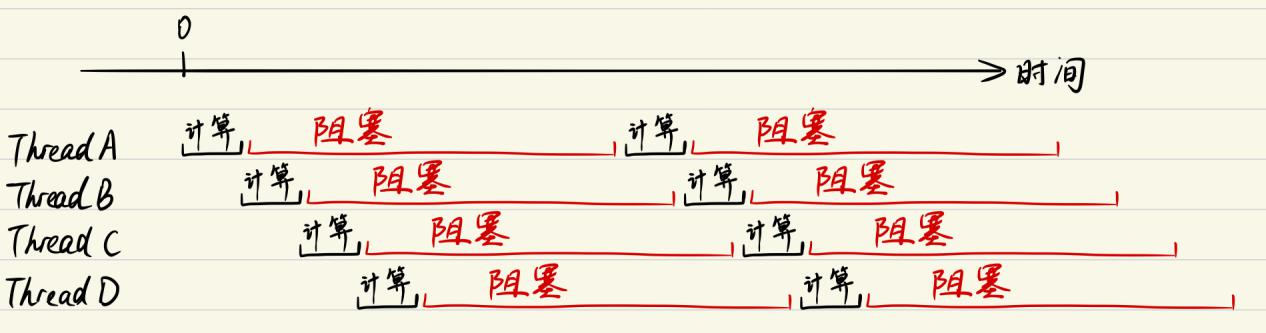 0
时间
Thread A 计算 阻塞 计算 阻塞
Thread B 计算 阻塞 计算 阻塞
Thread C 计算 阻塞 计算 阻塞
Thread D 计算 阻塞 计算 阻塞